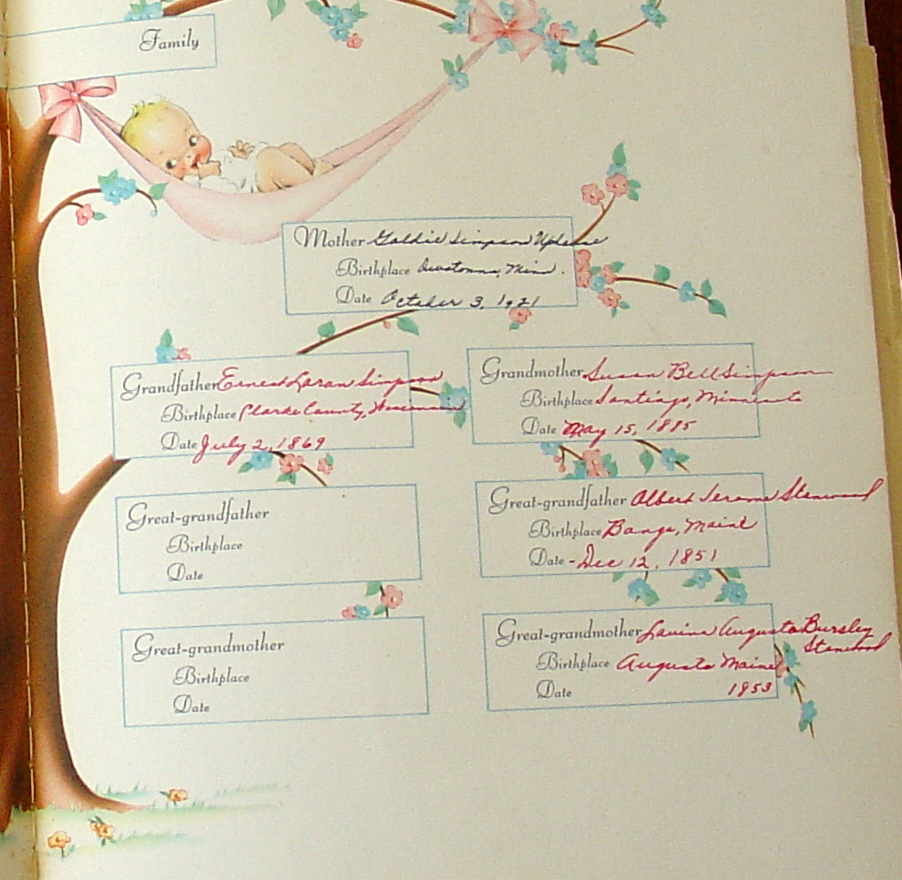 Family
Mother Goldie Simpson
Birthplace Owatonna, Minn.
Date October 3, 1921
Grandfather Ernest Loran Simpson
Birthplace Clarke County, Wisconsin
Date July 2, 1869
Grandmother Susan Bell Simpson
Birthplace Santiago, Minnesota
Date May 15, 1895
Great-grandfather
Birthplace
Date
Great-grandfather Albert Jerome Stanwood
Birthplace Bango, Maine
Date - Dec 12, 1851
Great-grandmother
Birthplace
Date
Great-grandmother Lavina Augusta Bursley
Stanwood
Birthplace Augusta Maine
Date 1853